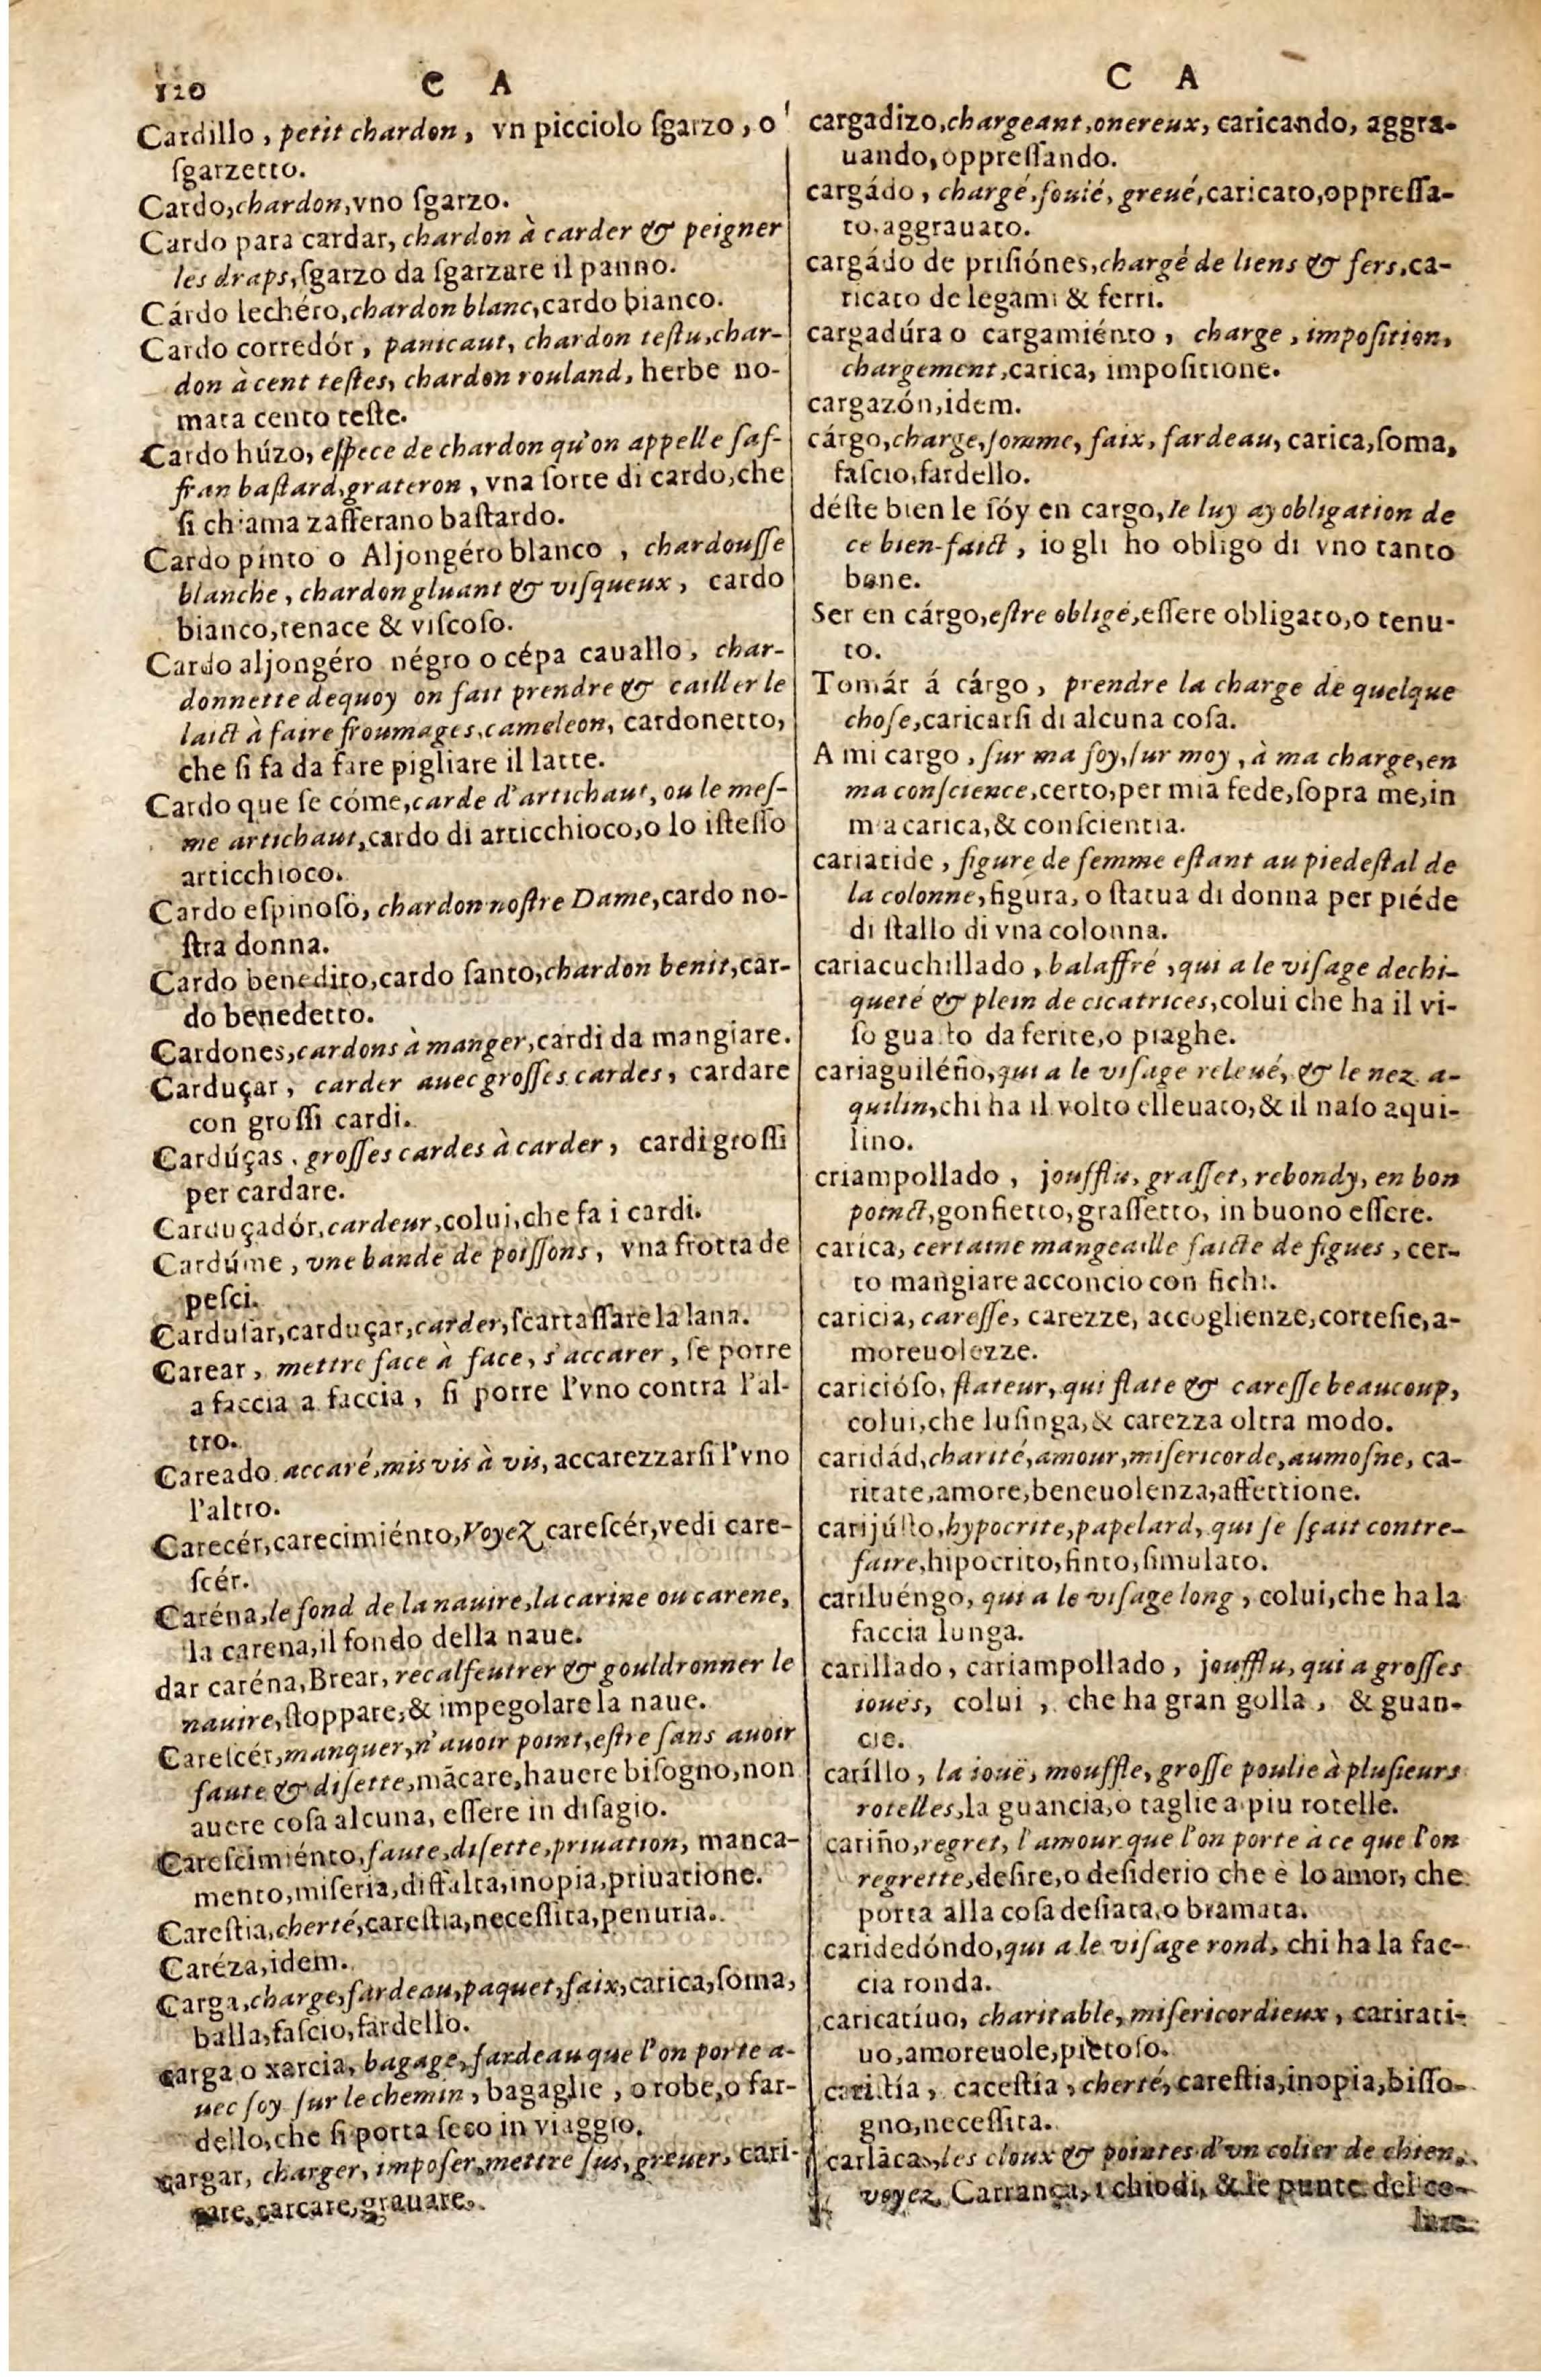 120 C A
Cardillo, petit chardon, vn picciolo ſgarzo, o
ſgarzetto.
Cardo, chardon, vno ſgarzo.
Cardo para cardar, chardon à carder & peigner
les draps, ſgarzo da ſgarzare il panno.
Cárdo lechéro, chardon blanc, cardo bianco.
Cardo corredór, panicaut, chardon teſtu, char-
don à cent teſtes, chardon rouland, herbe no-
mata cento teſte.
Cardo húzo, eſpece de chardon qu'on appelle ſaf-
fran baſtard, grateron, vna ſorte di cardo, che
ſi chiama zafferano baſtardo.
Cardo pinto o Aljongéro blanco, chardouſſe
blanche, chardon gluant & viſqueux, cardo
bianco, tenace & viſcoſo.
Cardo aljongéro négro o cépa cauallo, char-
donnette dequoy on fait prendre & cailler le
laict à faire froumages, cameleon, cardonetto,
che ſi fa da fare pigliare il latte.
Cardo que ſe cóme, carde d'artichaut, ou le meſ-
me artichaut, cardo di articchioco, o lo iſteſſo
articchioco.
Cardo eſpinoſo, chardon noſtre Dame, cardo no-
ſtra donna.
Cardo benedito, cardo ſanto, chardon benit, car-
do benedetto.
Cardones, cardons à manger, cardi da mangiare.
Carduçar, carder auec groſſes cardes, cardare
con groſſi cardi.
Cardúças, groſſes cardes à carder, cardi groſſi
per cardare.
Carduçadór, cardeur, colui, che fa i cardi.
Cardúme, vne bande de poiſſons, vna frotta de
peſci.
Carduſar, carduçar, carder, ſcartaſſare la lana.
Carear, mettre face à face, s'accarer, ſe porre
a faccia a faccia, ſi porre l'vno contra l'al-
tro.
Careado accaré, mis vis à vis, accarezzarſi l'vno
l'altro.
Carecér, carecimiénto, Voyez careſcér, vedi care-
ſcér.
Caréna, le fond de la nauire, la carine ou carene,
la carena, il fondo della naue.
dar caréna, Brear, recalfeutrer & gouldronner le
nauire, ſtoppare, & impegolare la naue.
Careſcér, manquer, n'auoir point, eſtre ſans auoir
faute & diſette, mācare, hauere biſogno, non
auere coſa alcuna, eſſere in diſagio.
Careſcimiénto, faute, diſette, priuation, manca-
mento, miſeria, diffalta, inopia, priuatione.
Careſtia, cherté, careſtia, neceſſita, penuria.
Caréza, idem.
Carga, charge, fardeau, paquet, faix, carica, ſoma,
balla, faſcio, fardello.
carga o xarcia, bagage, fardeau que l'on porte a-
uec ſoy ſur le chemin, bagaglie, o robe, o far-
dello, che ſi porta ſeco in viaggio.
cargar, charger, impoſer, mettre ſus, greuer, cari-
care, carcare, grauare.
C A
cargadizo, chargeant, onereux, caricando, aggra-
uando, oppreſſando.
cargádo, chargé, foulé, greué, caricato, oppreſſa-
to, aggrauato.
cargádo de priſiónes, chargé de liens & fers, ca-
ricato de legami & ferri.
cargadúra o cargamiénto, charge, impoſition,
chargement, carica, impoſitione.
cargazón, idem.
cárgo, charge, ſomme, faix, fardeau, carica, ſoma,
faſcio, fardello.
déſte bien le ſóy en cargo, Ie luy ay obligation de
ce bien-faict, io gli ho obligo di vno tanto
bene.
Ser en cárgo, eſtre obligé, eſſere obligato, o tenu-
to.
Tomár á cárgo, prendre la charge de quelque
choſe, caricarſi di alcuna coſa.
A mi cargo, ſur ma foy, ſur moy, à ma charge, en
ma conſcience, certo, per mia fede, ſopra me, in
mia carica, & conſcientia.
cariatide, figure de femme eſtant au piedeſtal de
la colonne, figura, o ſtatua di donna per piéde
di ſtallo di vna colonna.
cariacuchillado, balaffré, qui a le viſage dechi-
queté & plein de cicatrices, colui che ha il vi-
ſo guaſto da ferite, o piaghe.
cariaguiléño, qui a le viſage releué, & le nez a-
quilin, chi ha il volto elleuato, & il naſo aqui-
lino.
criampollado, joufflu, graſſet, rebondy, en bon
poinct, gonfietto, graſſetto, in buono eſſere.
carica, certaine mangeaille faicte de figues, cer-
to mangiare acconcio con fichi.
caricia, careſſe, carezze, accoglienze, corteſie, a-
moreuolezze.
caricióſo, flateur, qui flate & careſſe beaucoup,
colui, che luſinga, & carezza oltra modo.
caridád, charité, amour, miſericorde, aumoſne, ca-
ritate, amore, beneuolenza, affettione.
carijúſto, hypocrite, papelard, qui ſe ſçait contre-
faire, hipocrito, finto, ſimulato.
cariluéngo, qui a le viſage long, colui, che ha la
faccia lunga.
carillado, cariampollado, joufflu, qui a groſſes
ioues, colui, che ha gran golla, & guan-
cie.
caríllo, la iouë, mouffle, groſſe poulie à pluſieurs
rotelles, la guancia, o taglie a piu rotelle.
cariño, regret, l'amour que l'on porte à ce que l'on
regrette, deſire, o deſiderio che è lo amor, che
porta alla coſa deſiata, o bramata.
caridedóndo, qui a le viſage rond, chi ha la fac-
cia ronda.
caricatíuo, charitable, miſericordieux, caritati-
uo, amoreuole, pietoſo.
cariſtía, caceſtía, cherté, careſtia, inopia, biſſo-
gno, neceſſita.
carlácas, les cloux & pointes d'vn colier de chien,
voyez Carrança, i chiodi, & le punte del co-
lare